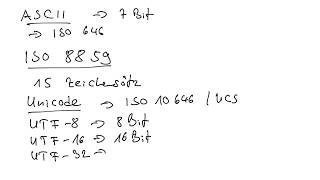 ASCII -> 7 Bit
-> ISO 646
ISO 8859
15 Zeichensätz
Unicode -> ISO 10646 / UCS
UTF-8 -> 8 Bit
UTF-16 -> 16 Bit
UTF-32 ->